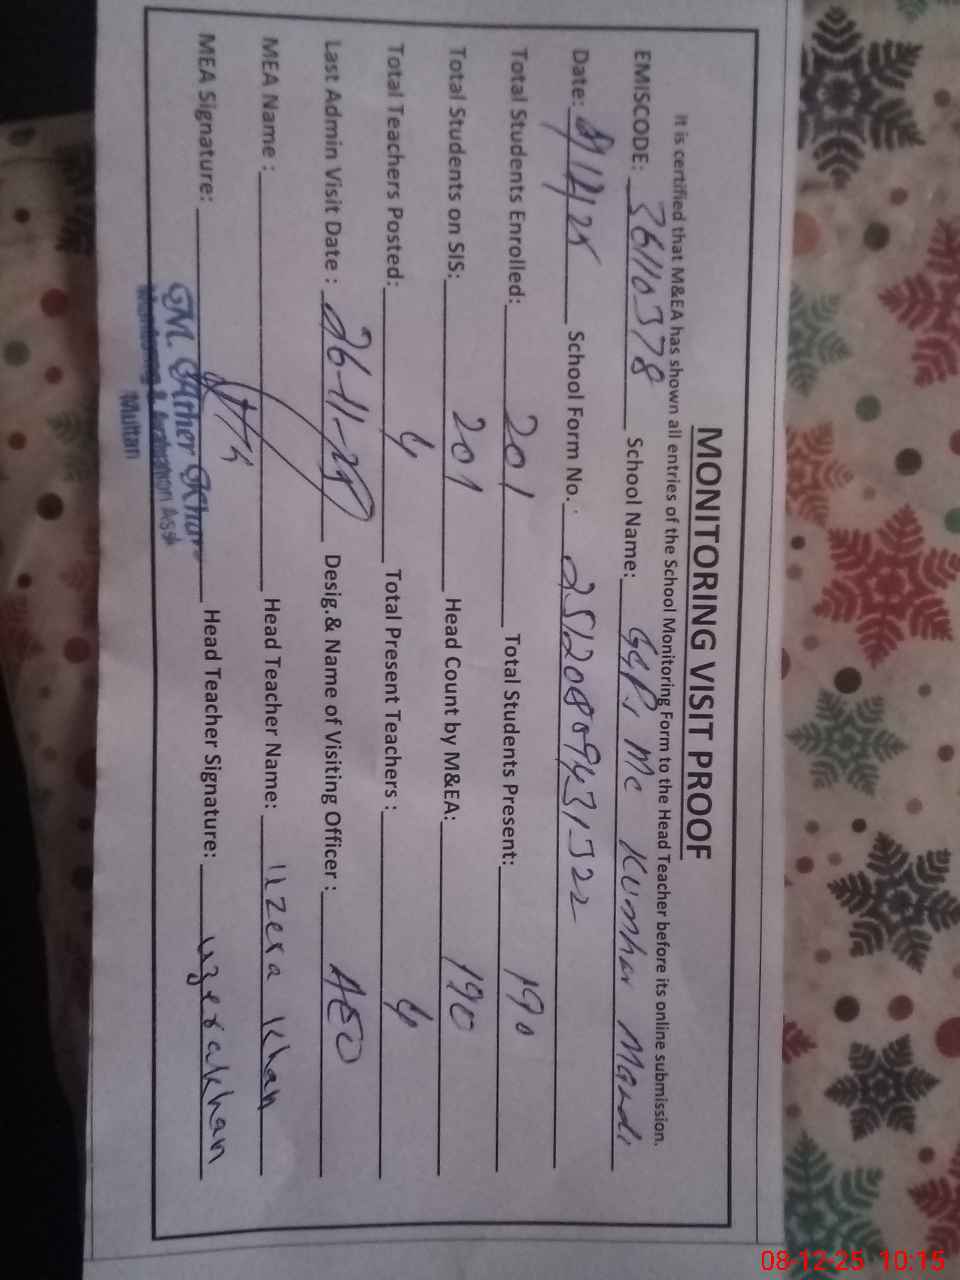 MONITORING VISIT PROOF
It is certified that M&EA has shown all entries of the School Monitoring Form to the Head Teacher before its online submission.
EMISCODE: 36110378 School Name: GGPS MC Kumhar Mandi
Date: 8/12/25 School Form No. : 25120809431322
Total Students Enrolled: 201 Total Students Present: 190
Total Students on SIS: 201 Head Count by M&EA: 190
Total Teachers Posted: 4 Total Present Teachers : 4
Last Admin Visit Date : 26-11-25 Desig.& Name of Visiting Officer : AEO
MEA Name : Head Teacher Name: Uzera Khan
MEA Signature: Head Teacher Signature: uzerakhan
M. Ather Khan
Monitoring & Evaluation Asst
Multan
08-12-25 10:15